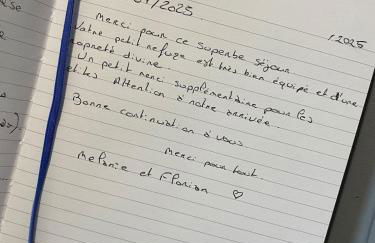 /2025
/2025
Merci pour ce superbe séjour
Votre petit refuge est très bien équipé et d'une
propreté divine
Un petit merci supplémentaire pour les
petites Attention à notre arrivée.
Bonne continuation à vous
Merci pour tout.
Melanie et Florian ♡